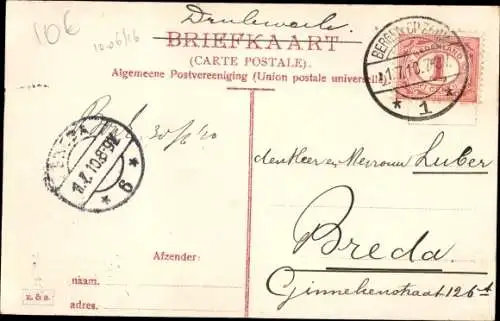 10€
10-06/26
Drukwerk
BRIEFKAART
(CARTE POSTALE).
Algemeene Postvereeniging (Union postale universelle).
BERGEN OP ZOOM
1.7.10.
* 1 *
NEDERLAND
1
1.7.10.8-9V
* 6 *
30/6 '10
den Heer en Mevrouw Luber
Breda.
Ginnekenstraat 126A
Afzender:
naam.
adres.
z. & s.